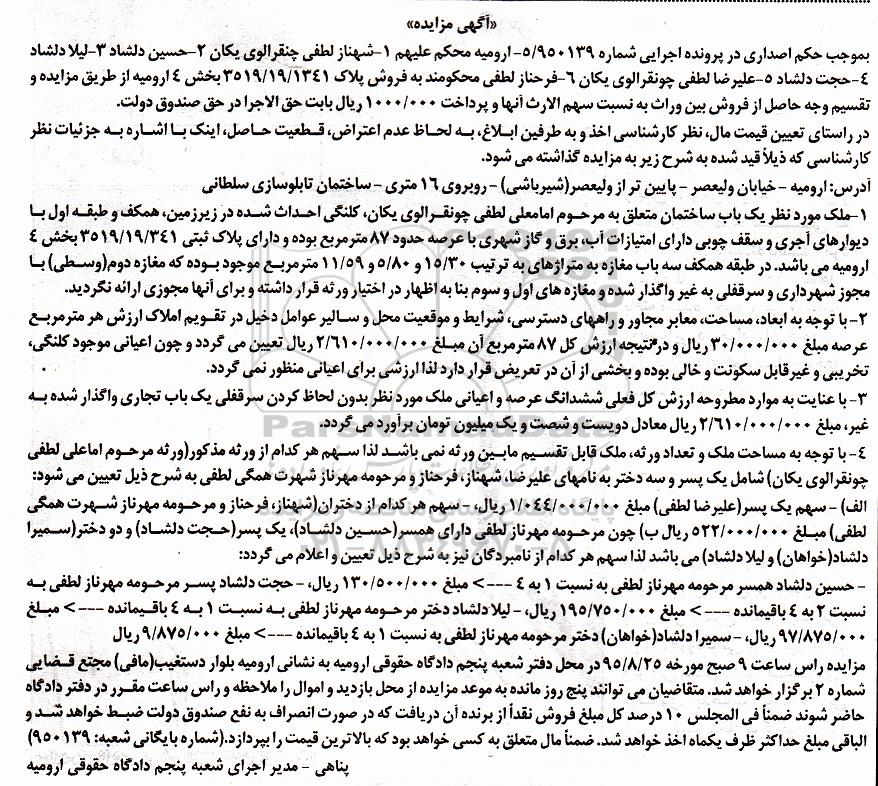 «آگهی مزایده»
بموجب حکم اصداری در پرونده اجرایی شماره ۵/۹۵۰۱۳۹- ارومیه محکم علیهم ۱-شهناز لطفی چنقرالوی یکان ۲-حسین دلشاد ۳-لیلا دلشاد
۴-حجت دلشاد ۵-علیرضا لطفی چونقرالوی یکان ۶-فرحناز لطفی محکومند به فروش پلاک ۳۵۱۹/۱۹/۱۳۴۱ بخش ۴ ارومیه از طریق مزایده و
تقسیم وجه حاصل از فروش بین وراث به نسبت سهم الارث آنها و پرداخت ۱۰۰۰/۰۰۰ ریال بابت حق الاجرا در حق صندوق دولت.
در راستای تعیین قیمت مال، نظر کارشناسی اخذ و به طرفین ابلاغ، به لحاظ عدم اعتراض، قطعیت حاصل، اینک با اشاره به جزئیات نظر
کارشناسی که ذیلاً قید شده به شرح زیر به مزایده گذاشته می شود.
آدرس: ارومیه - خیابان ولیعصر - پایین تر از ولیعصر(شیرباشی) - روبروی ۱۶ متری - ساختمان تابلوسازی سلطانی
۱-ملک مورد نظر یک باب ساختمان متعلق به مرحوم امامعلی لطفی چونقرالوی یکان، کلنگی احداث شده در زیرزمین، همکف و طبقه اول با
دیوارهای آجری و سقف چوبی دارای امتیازات آب، برق و گاز شهری با عرصه حدود ۸۷ مترمربع بوده و دارای پلاک ثبتی ۳۵۱۹/۱۹/۳۴۱ بخش ۴
ارومیه می باشد. در طبقه همکف سه باب مغازه به متراژهای به ترتیب ۱۵/۳۰ و ۵/۸۰ و ۱۱/۵۹ مترمربع موجود بوده که مغازه دوم(وسطی) با
مجوز شهرداری و سرقفلی به غیر واگذار شده و مغازه های اول و سوم بنا به اظهار در اختیار ورثه قرار داشته و برای آنها مجوزی ارائه نگردید.
۲- با توجه به ابعاد، مساحت، معابر مجاور و راههای دسترسی، شرایط و موقعیت محل و سالیر عوامل دخیل در تقویم املاک ارزش هر مترمربع
عرصه مبلغ ۳۰/۰۰۰/۰۰۰ ریال و در نتیجه ارزش کل ۸۷ مترمربع آن مبلغ ۲/۶۱۰/۰۰۰/۰۰۰ ریال تعیین می گردد و چون اعیانی موجود کلنگی،
تخریبی و غیرقابل سکونت و خالی بوده و بخشی از آن در تعریض قرار دارد لذا ارزشی برای اعیانی منظور نمی گردد.
۳- با عنایت به موارد مطروحه ارزش کل فعلی ششدانگ عرصه و اعیانی ملک مورد نظر بدون لحاظ کردن سرقفلی یک باب تجاری واگذار شده به
غیر، مبلغ ۲/۶۱۰/۰۰۰/۰۰۰ ریال معادل دویست و شصت و یک میلیون تومان برآورد می گردد.
۴- با توجه به مساحت ملک و تعداد ورثه، ملک قابل تقسیم مابین ورثه نمی باشد لذا سهم هر کدام از ورثه مذکور(ورثه مرحوم اماعلی لطفی
چونقرالوی یکان) شامل یک پسر و سه دختر به نامهای علیرضا، شهناز، فرحناز و مرحومه مهرناز شهرت همگی لطفی به شرح ذیل تعیین می شود:
الف) - سهم یک پسر(علیرضا لطفی) مبلغ ۱/۰۴۴/۰۰۰/۰۰۰ ریال، - سهم هر کدام از دختران(شهناز، فرحناز و مرحومه مهرناز شهرت همگی
لطفی) مبلغ ۵۲۲/۰۰۰/۰۰۰ ریال ب) چون مرحومه مهرناز لطفی دارای همسر(حسین دلشاد)، یک پسر(حجت دلشاد) و دو دختر(سمیرا
دلشاد(خواهان) و لیلا دلشاد) می باشد لذا سهم هر کدام از نامبردگان نیز به شرح ذیل تعیین و اعلام می گردد:
- حسین دلشاد همسر مرحومه مهرناز لطفی به نسبت ۱ به ۴ ---> مبلغ ۱۳۰/۵۰۰/۰۰۰ ریال، - حجت دلشاد پسر مرحومه مهرناز لطفی به
نسبت ۲ به ۴ باقیمانده ---> مبلغ ۱۹۵/۷۵۰/۰۰۰ ریال، - لیلا دلشاد دختر مرحومه مهرناز لطفی به نسبت ۱ به ۴ باقیمانده ---> مبلغ
۹۷/۸۷۵/۰۰۰ ریال، - سمیرا دلشاد(خواهان) دختر مرحومه مهرناز لطفی به نسبت ۱ به ۴ باقیمانده ---> مبلغ ۹/۸۷۵/۰۰۰ ریال
مزایده راس ساعت ۹ صبح مورخه ۹۵/۸/۲۵ در محل دفتر شعبه پنجم دادگاه حقوقی ارومیه به نشانی ارومیه بلوار دستغیب(مافی) مجتع قضایی
شماره ۲ برگزار خواهد شد. متقاضیان می توانند پنج روز مانده به موعد مزایده از محل بازدید و اموال را ملاحظه و راس ساعت مقرر در دفتر دادگاه
حاضر شوند ضمناً فی المجلس ۱۰ درصد کل مبلغ فروش نقداً از برنده آن دریافت که در صورت انصراف به نفع صندوق دولت ضبط خواهد شد و
الباقی مبلغ حداکثر ظرف یکماه اخذ خواهد شد. ضمناً مال متعلق به کسی خواهد بود که بالاترین قیمت را بپردازد.(شماره بایگانی شعبه: ۹۵۰۱۳۹)
پناهی - مدیر اجرای شعبه پنجم دادگاه حقوقی ارومیه
ParsNamadData